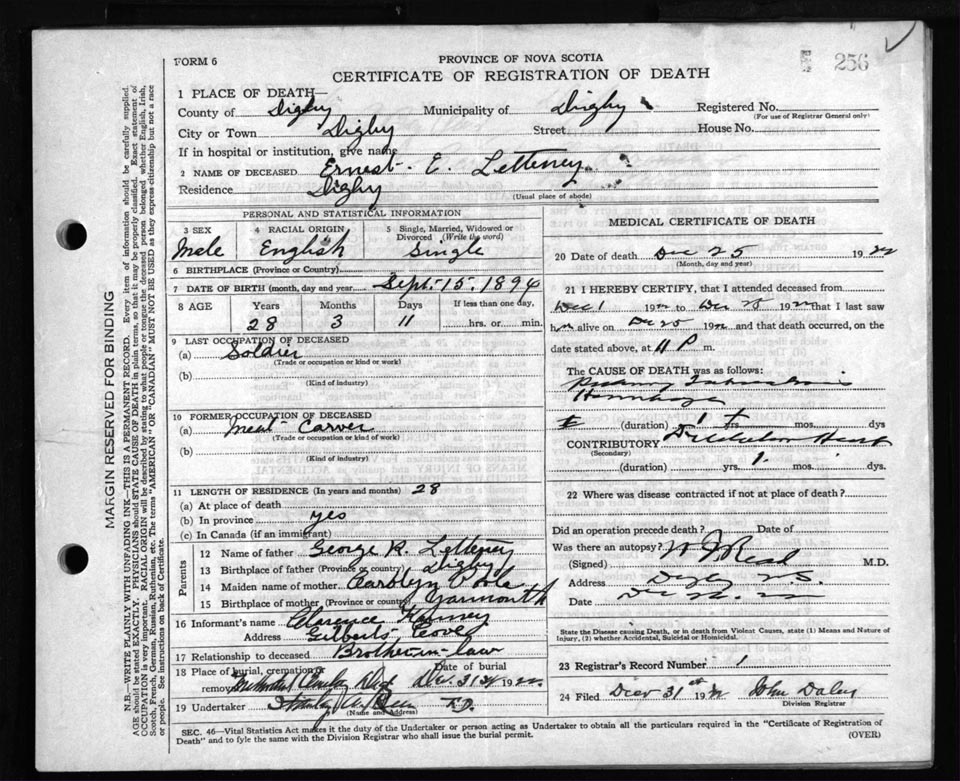 FORM 6
PROVINCE OF NOVA SCOTIA
256
CERTIFICATE OF REGISTRATION OF DEATH
1 PLACE OF DEATH—
County of Digby Municipality of Digby Registered No.
(For use of Registrar General only)
City or Town Digby Street House No.
If in hospital or institution, give name
2 NAME OF DECEASED Ernest E. Letteney
Residence Digby
(Usual place of abode)
PERSONAL AND STATISTICAL INFORMATION
3 SEX 4 RACIAL ORIGIN 5 Single, Married, Widowed or
Divorced (Write the word)
Male English Single
6 BIRTHPLACE (Province or Country)
7 DATE OF BIRTH (month, day and year) Sept. 15, 1894
8 AGE Years Months Days If less than one day,
28 3 11 hrs. or min.
9 LAST OCCUPATION OF DECEASED
(a) Soldier
(Trade or occupation or kind or work)
(b)
(Kind of industry)
10 FORMER OCCUPATION OF DECEASED
(a) Meat Carver
(Trade or occupation or kind of work)
(b)
(Kind of industry)
11 LENGTH OF RESIDENCE (In years and months) 28
(a) At place of death
(b) In province yes
(c) In Canada (if an immigrant)
Parents
12 Name of father George R. Letteney
13 Birthplace of father (Province or country) Digby
14 Maiden name of mother Carolyn
15 Birthplace of mother (Province or country) Yarmouth
16 Informant's name Clarence
Address Gilberts Cove
17 Relationship to deceased Brother-in-law
18 Place of burial, cremation or Date of burial
removal Dec. 31st 1922
19 Undertaker
(Name and Address)
MEDICAL CERTIFICATE OF DEATH
20 Date of death Dec 25 1922
(Month, day and year)
21 I HEREBY CERTIFY, that I attended deceased from
Dec 1 1922 to Dec 1922 that I last saw
him alive on Dec 25 1922 and that death occurred, on the
date stated above, at 11 P m.
The CAUSE OF DEATH was as follows:
Pulmonary Tuberculosis
Hemorrhage
(duration) 1 yrs mos. dys
CONTRIBUTORY Heart
(Secondary)
(duration) yrs. 1 mos dys.
22 Where was disease contracted if not at place of death?
Did an operation precede death? Date of
Was there an autopsy?
(Signed) M.D.
Address Digby N.S.
Date
State the Disease causing Death, or in death from Violent Causes, state (1) Means and Nature of
Injury, (2) whether Accidental, Suicidal or Homicidal.
23 Registrar's Record Number 1
24 Filed Decr 31st 1922 John Daley
Division Registrar
SEC. 46—Vital Statistics Act makes it the duty of the Undertaker or person acting as Undertaker to obtain all the particulars required in the "Certificate of Registration of
Death" and to fyle the same with the Division Registrar who shall issue the burial permit.
(OVER)
MARGIN RESERVED FOR BINDING
N.B.—WRITE PLAINLY WITH UNFADING INK—THIS IS A PERMANENT RECORD. Every item of information should be carefully supplied.
AGE should be stated EXACTLY. PHYSICIANS should STATE CAUSE OF DEATH in plain terms, so that it may be properly classified. Exact statement of
OCCUPATION is very important. RACIAL ORIGIN will be described by stating to what people or tongue the deceased person belonged whether English, Irish,
Scotch, French, German, Russian, Ruthenian, etc. The terms "AMERICAN" OR "CANADIAN" MUST NOT BE USED as they express citizenship but not a race
or people. See instructions on back of Certificate.